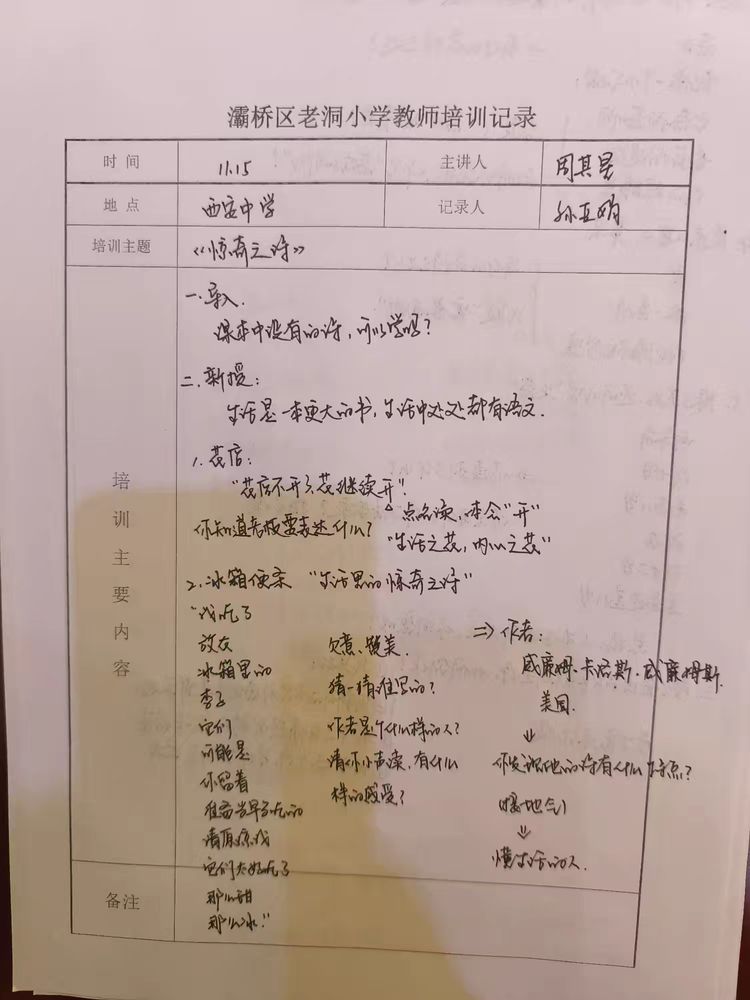 灞桥区老洞小学教师培训记录
时 间 11.15 主讲人 周其星
地 点 西安中学 记录人 孙亚娟
培训主题 《惊奇之诗》
培训主要内容
一. 导入.
课本中没有的诗，可以学吗？
二. 新授：
生活是一本更大的书，生活中处处都有语文.
1. 花店：
“花店不开了，花继续开”.
点名读，重念“开”
你知道老板要表达什么？
“生活之花，内心之花”
2. 冰箱便条 “生活里的惊奇之诗”
“我吃了
放在
冰箱里的
李子
它们
可能是
你留着
准备当早了吃的
请原谅我
它们太好吃了
那么甜
那么冰.”
欠意、赞美.
猜一猜谁写的？
作者是个什么样的人？
请你小声读，有什么
样的感受？
⇒ 作者：
威廉姆·卡洛斯·威廉姆斯.
美国.
⇓
你发现他的诗有什么特点？
(接地气)
⇓
懂生活的人.
备注